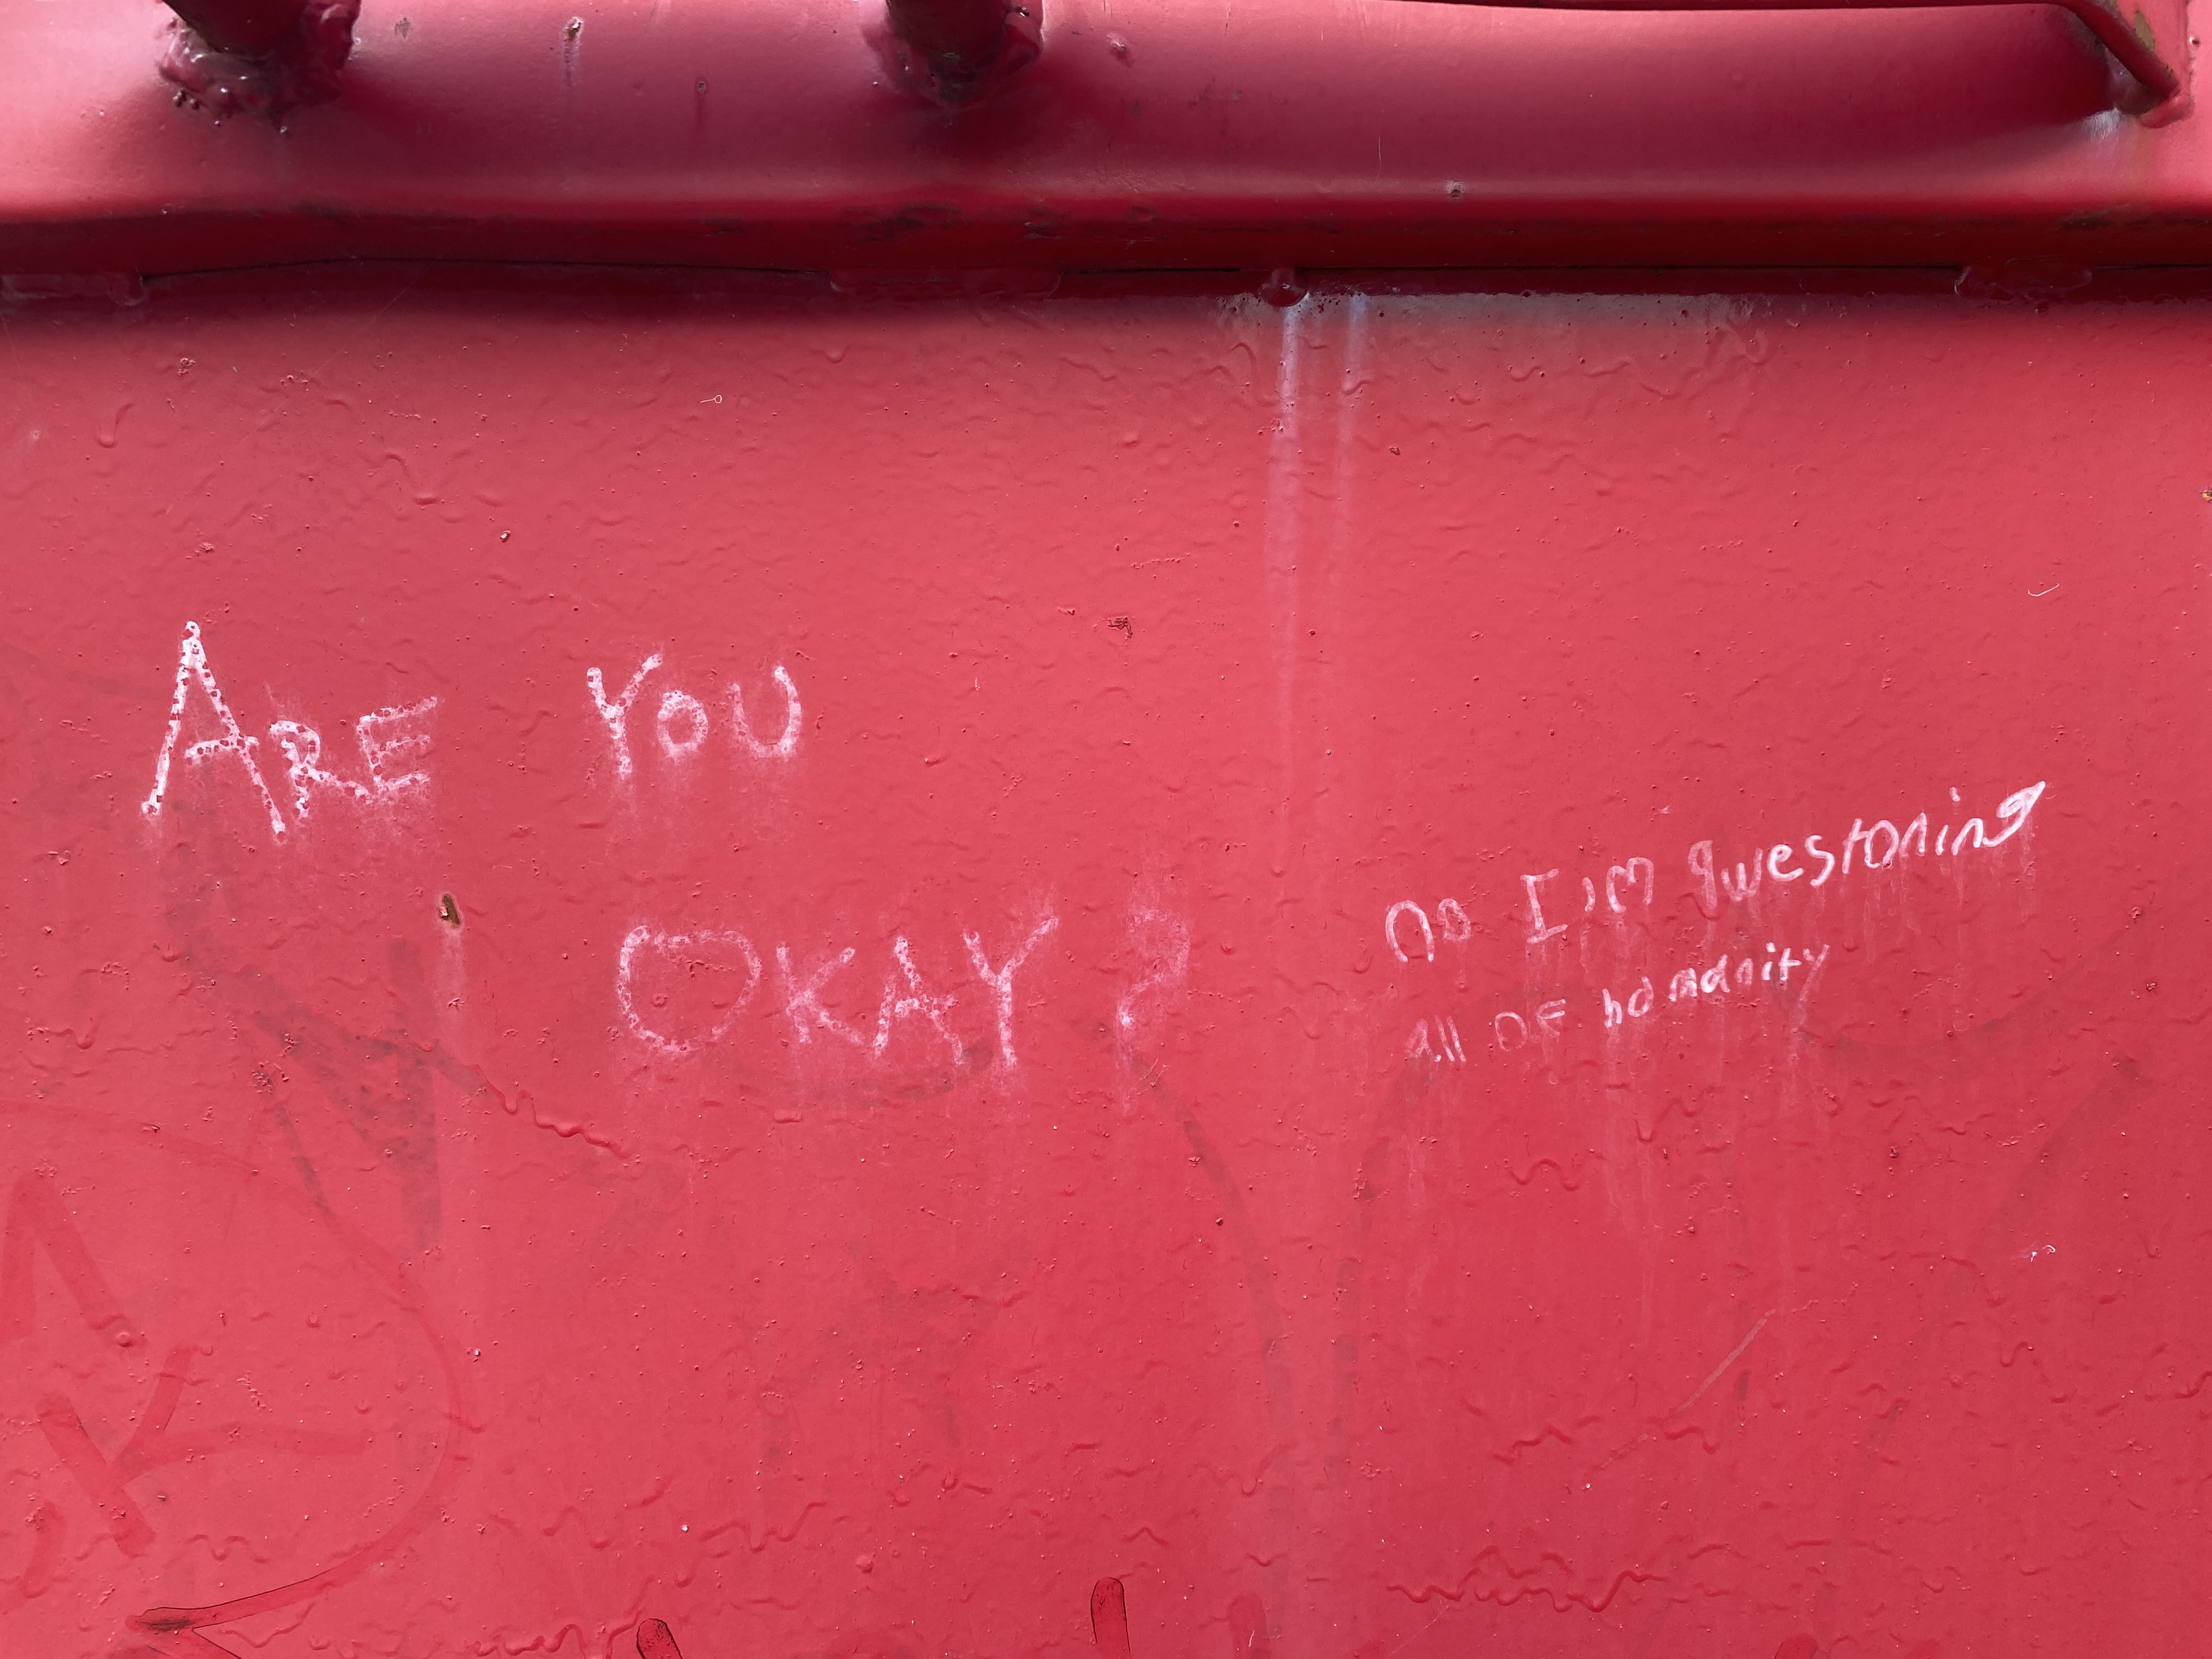 ARE YOU
OKAY?
no I'm questoning
all OF homanity